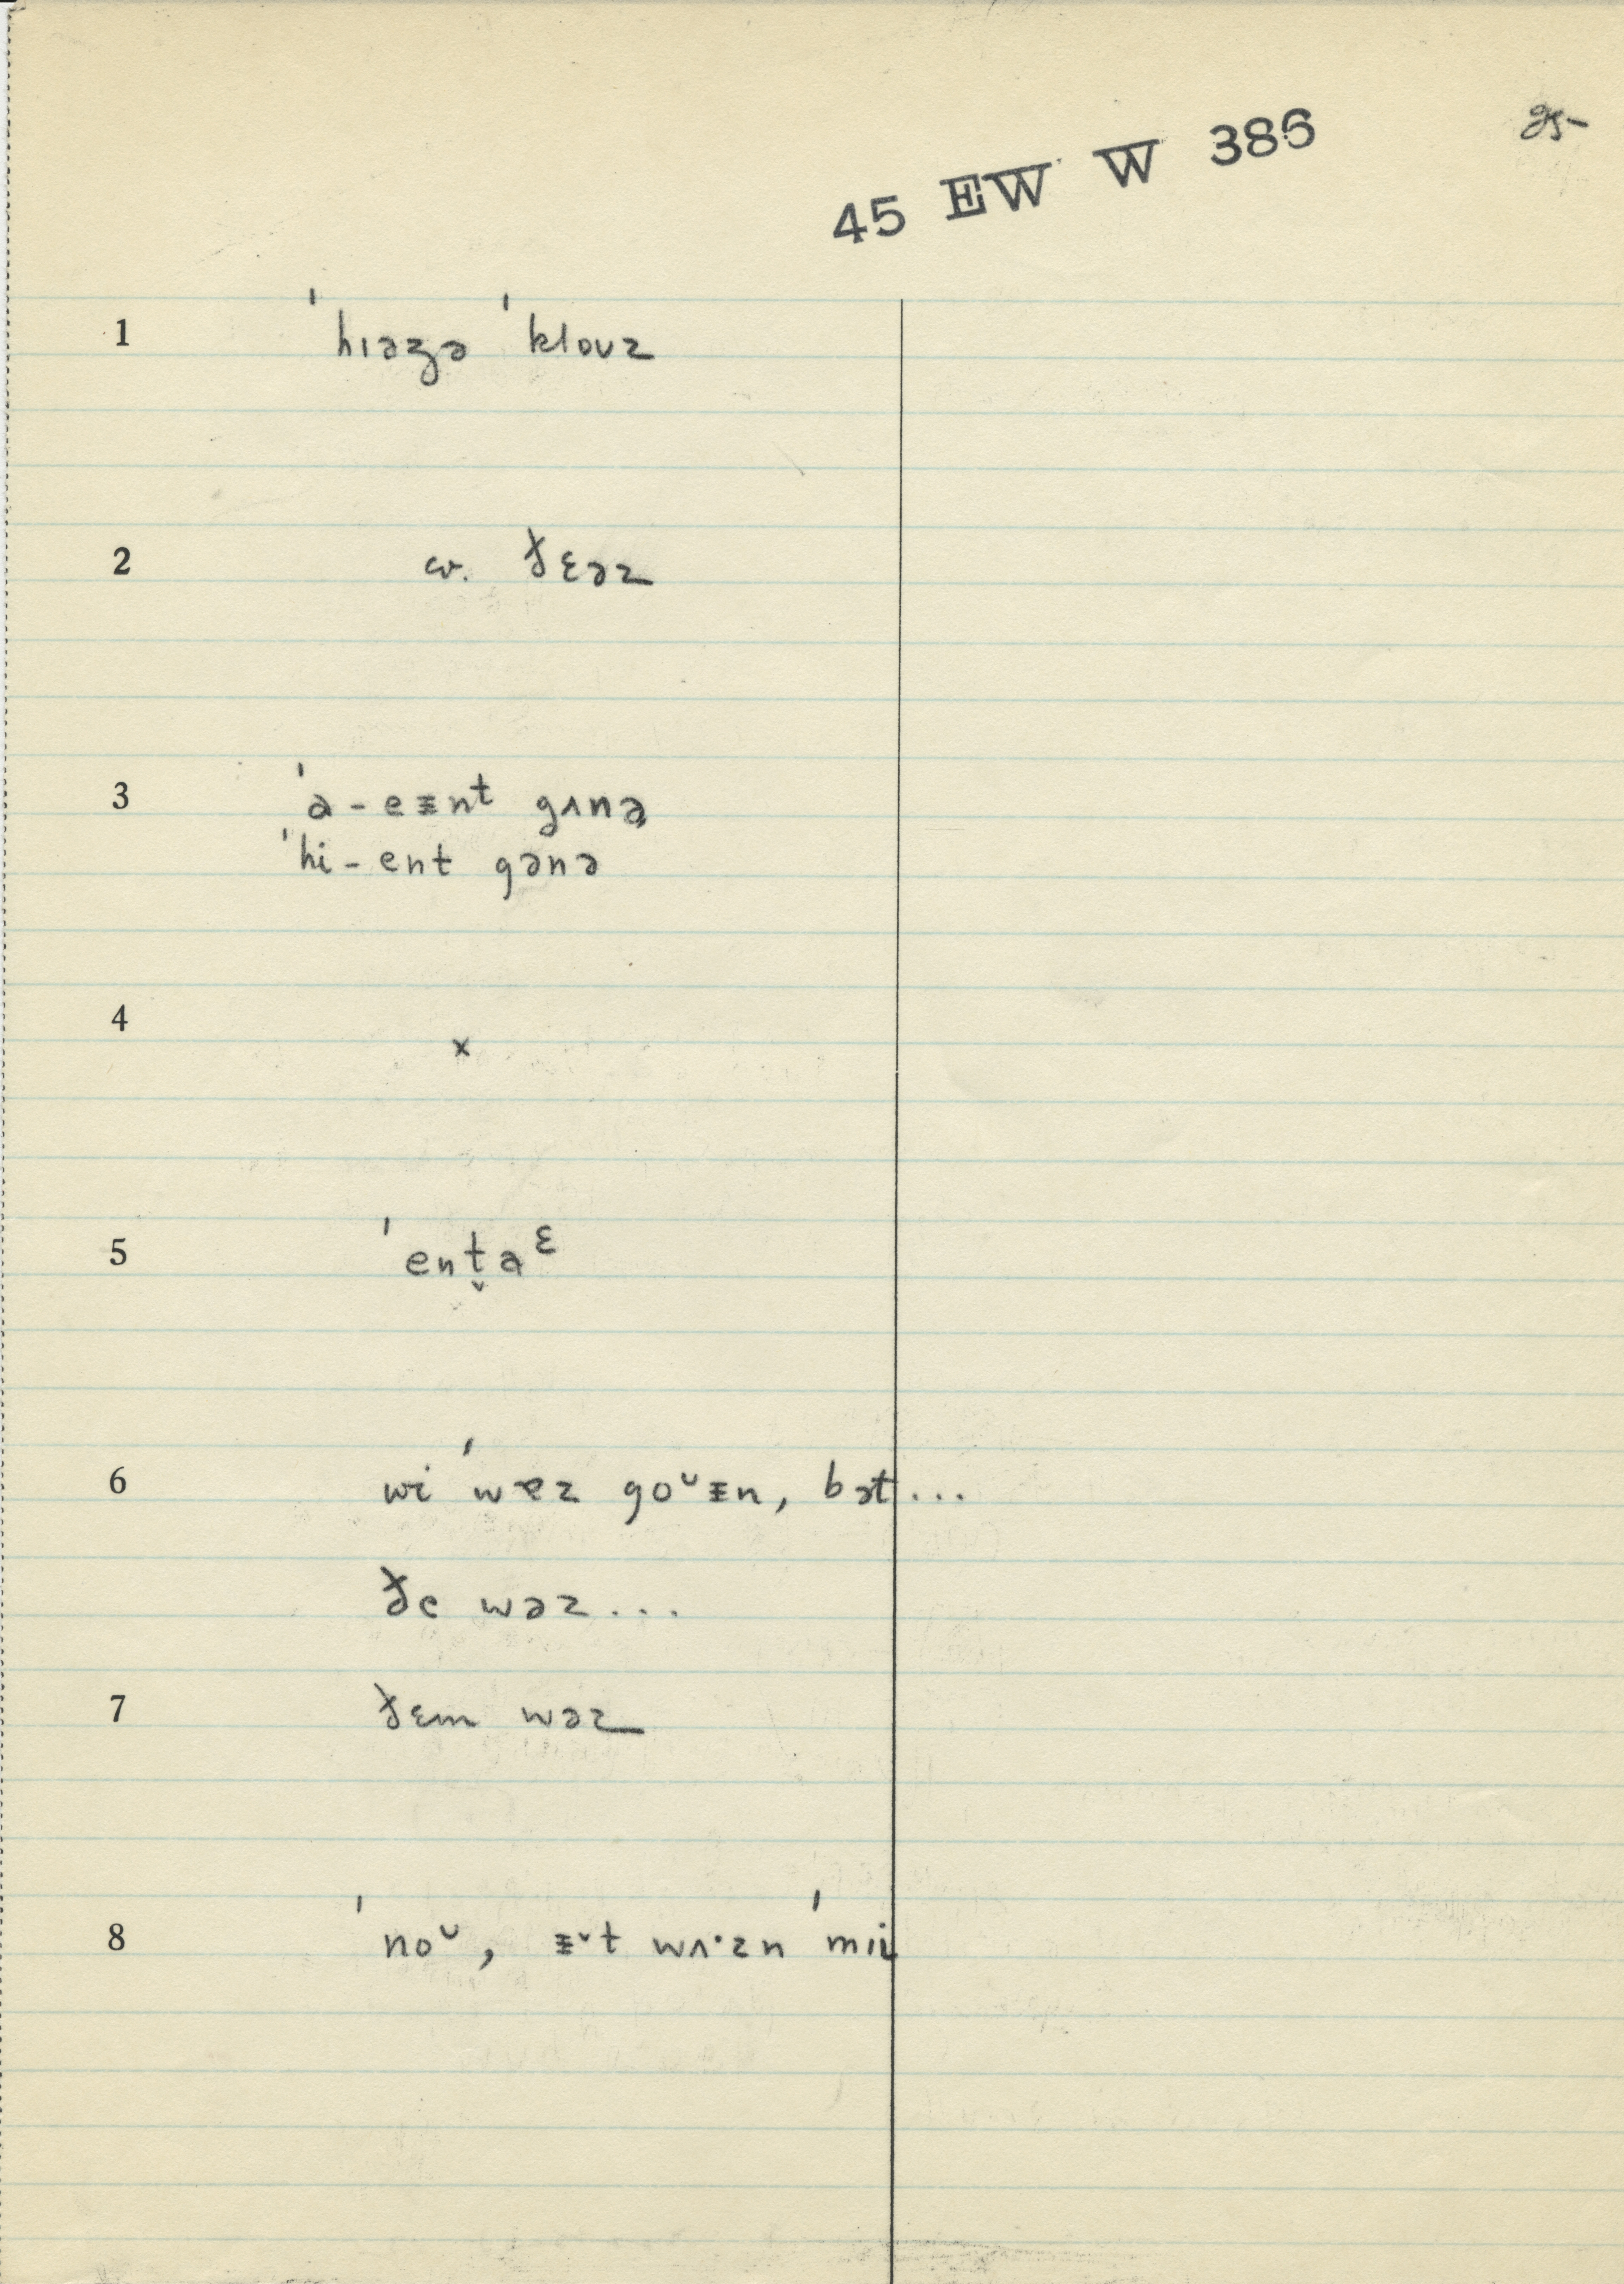 25-
45 EW W 386
1 ˈhɪəzə ˈklouz
2 cv. ðɛəz
3 ˈa-eɪntᵗ gʌnə
ˈhi-ent gənə
4 x
5 ˈent̬aᵋ
6 wi ˈwɐz goᵘɪn, bət...
ðe wəz...
7 ðɛm wəz
8 ˈnoᵘ, ɪˇt wʌ·zn ˈmii